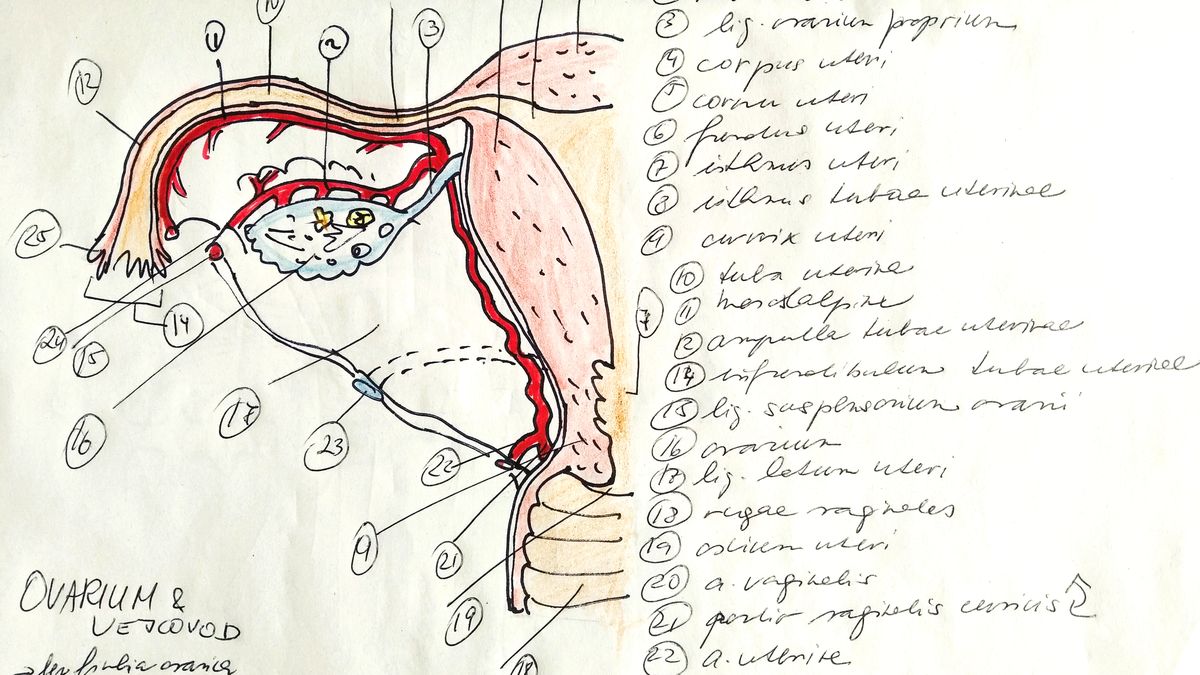 1
2
3
12
25
24
15
14
16
17
23
22
9
21
19
18
7
OVARIUM &
VEJCOVOD
3 lig. ovarium proprium
4 corpus uteri
5 cornu uteri
6 fundus uteri
7 isthmus uteri
8 isthmus tubae uterinae
9 cervix uteri
10 tuba uterina
11 mesosalpinx
12 ampulla tubae uterinae
14 infundibulum tubae uterinae
15 lig. suspensorium ovarii
16 ovarium
17 lig. latum uteri
18 rugae vaginales
19 ostium uteri
20 a. vaginalis
21 portio vaginalis cervicis
22 a. uterina